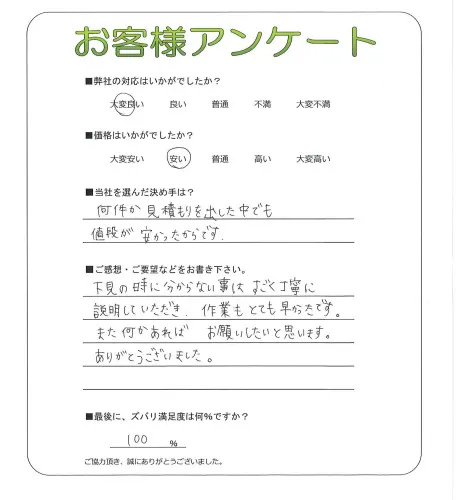 お客様アンケート
■弊社の対応はいかがでしたか?
大変良い 良い 普通 不満 大変不満
■価格はいかがでしたか?
大変安い 安い 普通 高い 大変高い
■当社を選んだ決め手は?
何件か見積もりを出した中でも
値段が安かったからです.
■ご感想・ご要望などをお書き下さい。
下見の時に分からない事はすごく丁寧に
説明していただき、作業もとても早かったです。
また何かあれば お願いしたいと思います。
ありがとうございました。
■最後に、ズバリ満足度は何%ですか?
100 %
ご協力頂き、誠にありがとうございました。